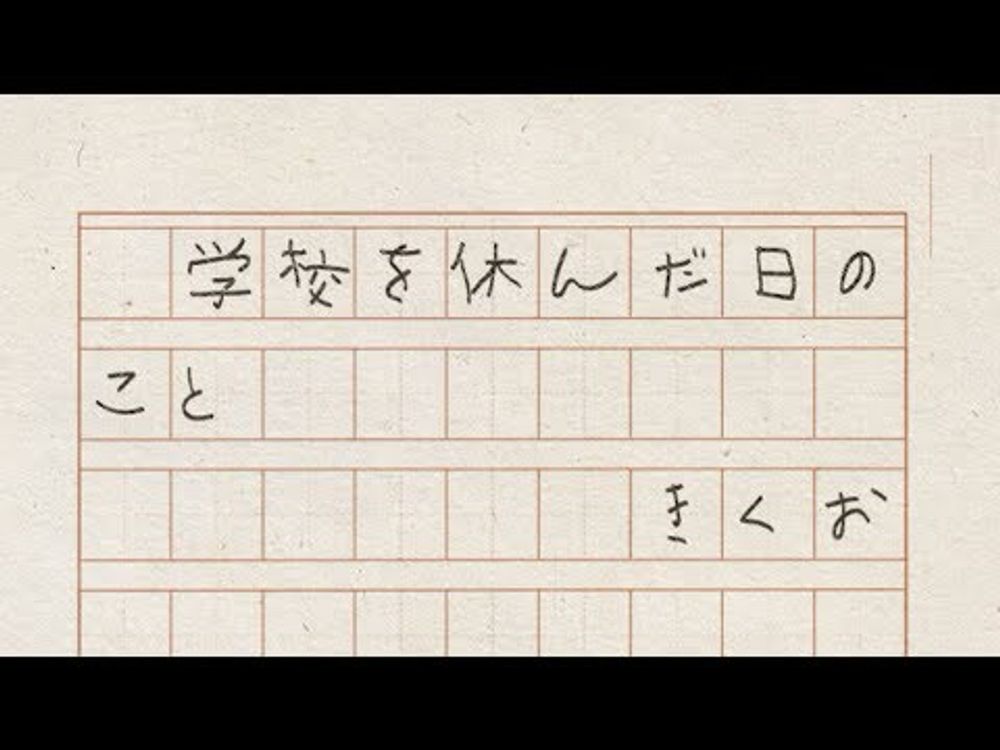 学校を休んだ日の
こと
きくお